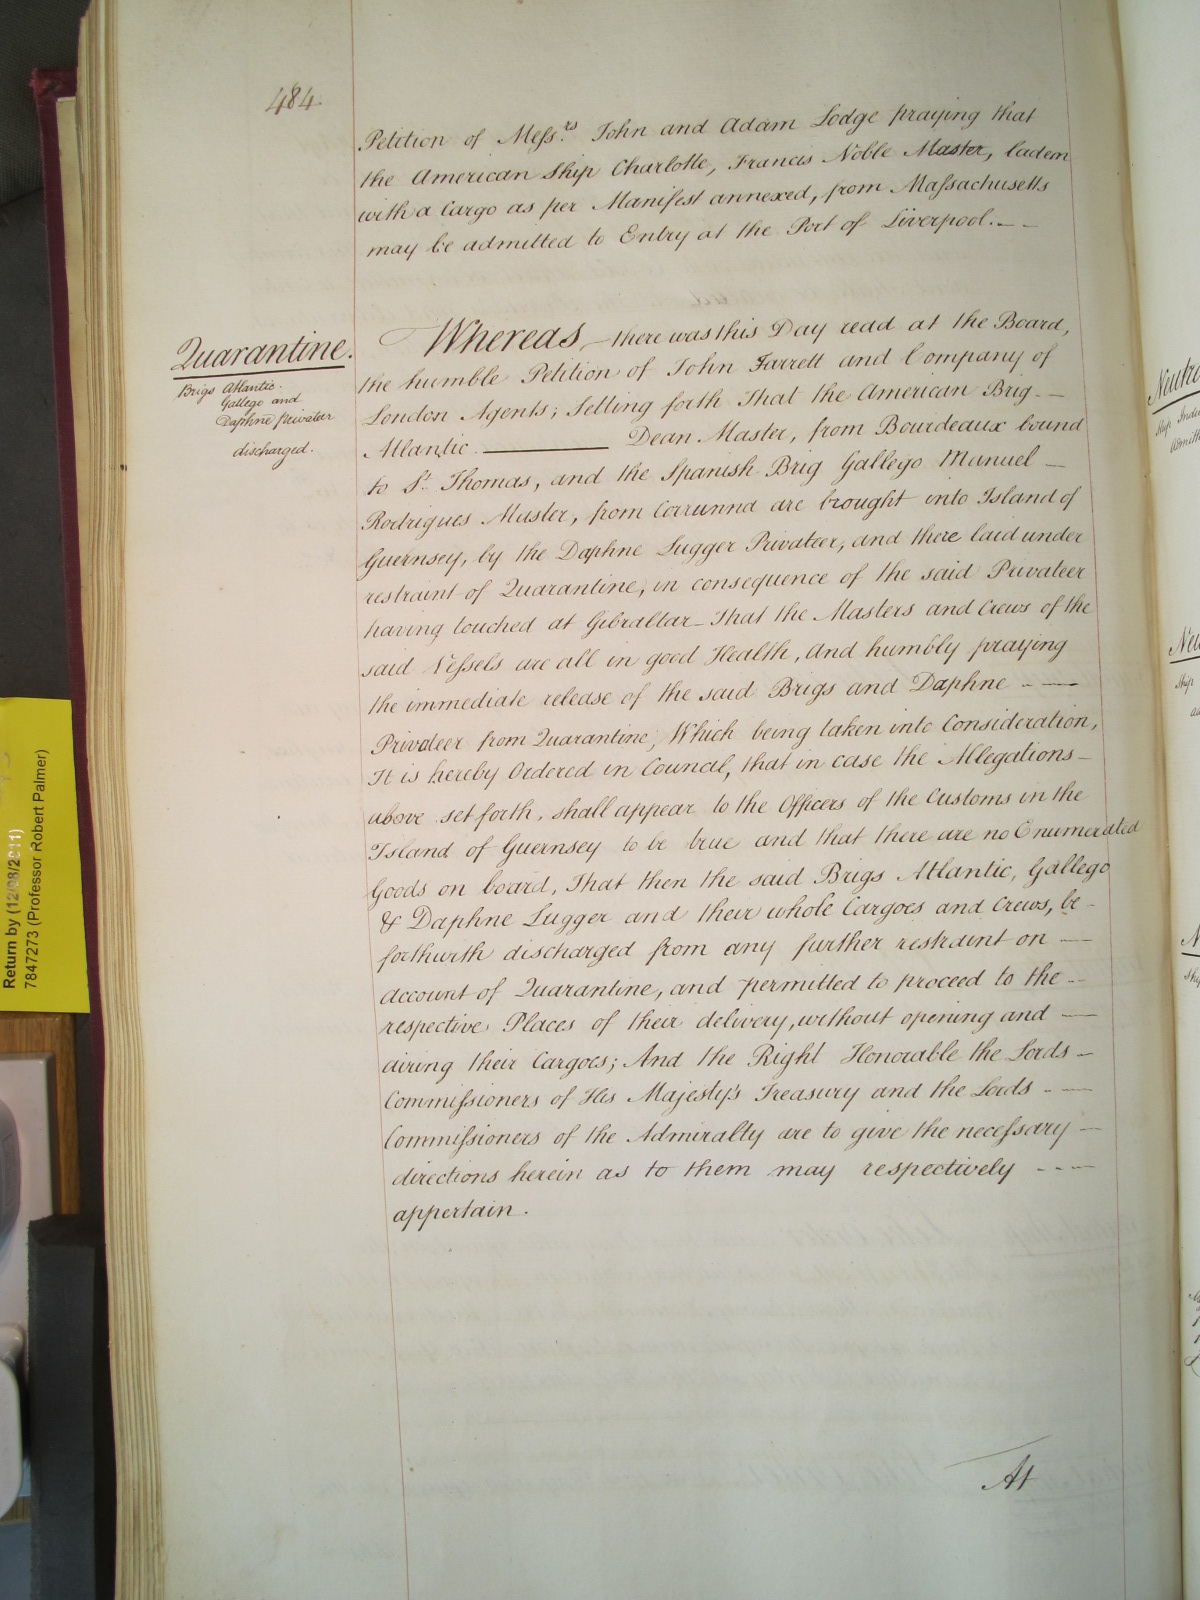 484.
Petition of Mess.rs John and Adam Lodge praying that
the American Ship Charlotte, Francis Noble Master, laden
with a Cargo as per Manifest annexed, from Massachusetts
may be admitted to Entry at the Port of Liverpool. - -
Quarantine.
Brigs Atlantic.
Gallego and
Daphne privateer
discharged.
Whereas there was this Day read at the Board,
the humble Petition of John Jarrett and Company of
London Agents; Setting forth That the American Brig -
Atlantic ——— Dean Master, from Bourdeaux bound
to St. Thomas, and the Spanish Brig Gallego Manuel -
Rodrigues Master, from Corunna are brought into Island of
Guernsey, by the Daphne Lugger Privateer, and there laid under
restraint of Quarantine, in consequence of the said Privateer
having touched at Gibraltar - That the Masters and Crews of the
said Vessels are all in good Health, And humbly praying
the immediate release of the said Brigs and Daphne - —
Privateer from Quarantine, Which being taken into Consideration,
It is hereby Ordered in Council, that in case the Allegations -
above set forth, shall appear to the Officers of the Customs in the
Island of Guernsey to be true and that there are no Enumerated
Goods on board, That then the said Brigs Atlantic, Gallego
& Daphne Lugger and their whole Cargoes and Crews, be -
forthwith discharged from any further restraint on —
account of Quarantine, and permitted to proceed to the -
respective Places of their delivery, without opening and —
airing their Cargoes; And the Right Honorable the Lords -
Commissioners of His Majesty's Treasury and the Lords - —
Commissioners of the Admiralty are to give the necessary —
directions herein as to them may respectively - - -
appertain.
At
Return by (12/08/2011)
7847273 (Professor Robert Palmer)